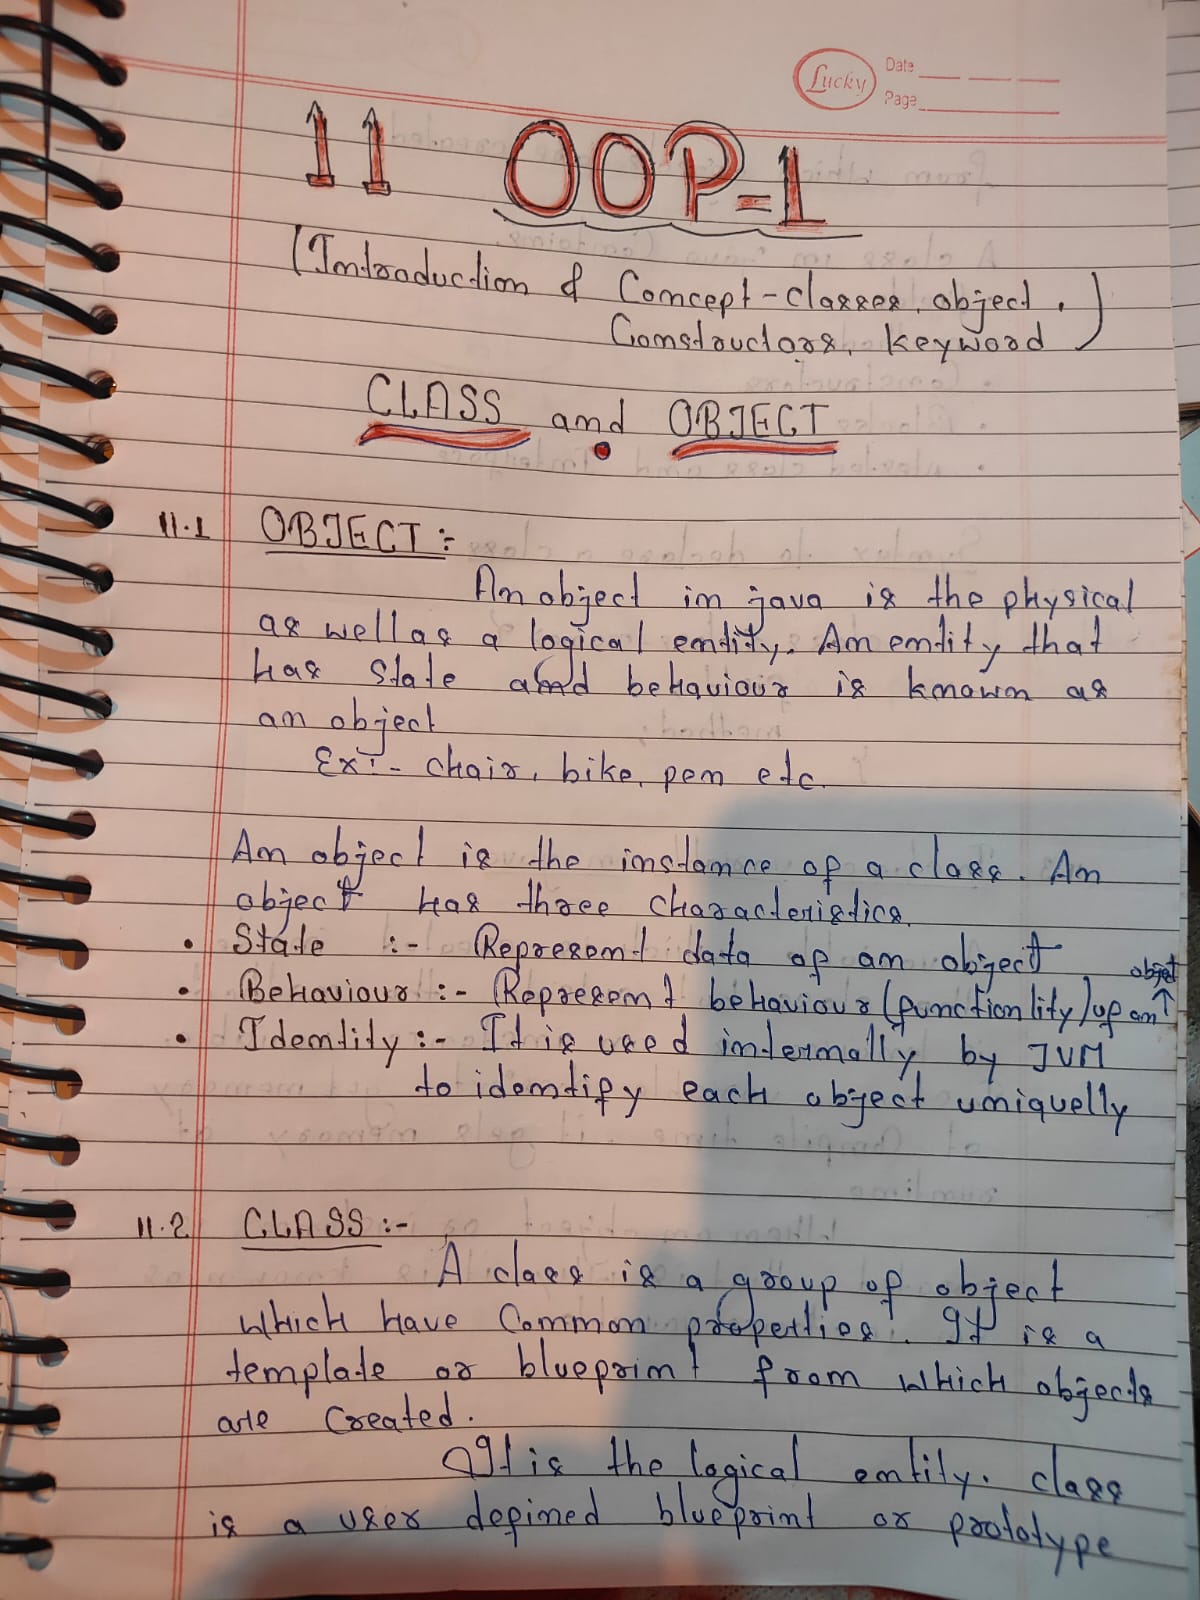 Lucky
Date
Page
11 OOP-1
(Introduction & Concept-classes, object,
Constructors, keyword)
CLASS and OBJECT
11.1 OBJECT :-
An object in java is the physical
as well as a logical entity. An entity that
has state and behaviour is known as
an object
Ex:- Chair, bike, pen etc.
An object is the instance of a class. An
object has three characteristics.
• State :- Represent data of an object
object
• Behaviour :- Represent behaviour (functionlity) of an ↑
• Identity :- It is used internally by JVM
to identify each object uniquelly
11.2 CLASS :-
A class is a group of object
which have common properties. It is a
template or blueprint from which objects
are created.
It is the logical entity. class
is a user defined blueprint or prototype